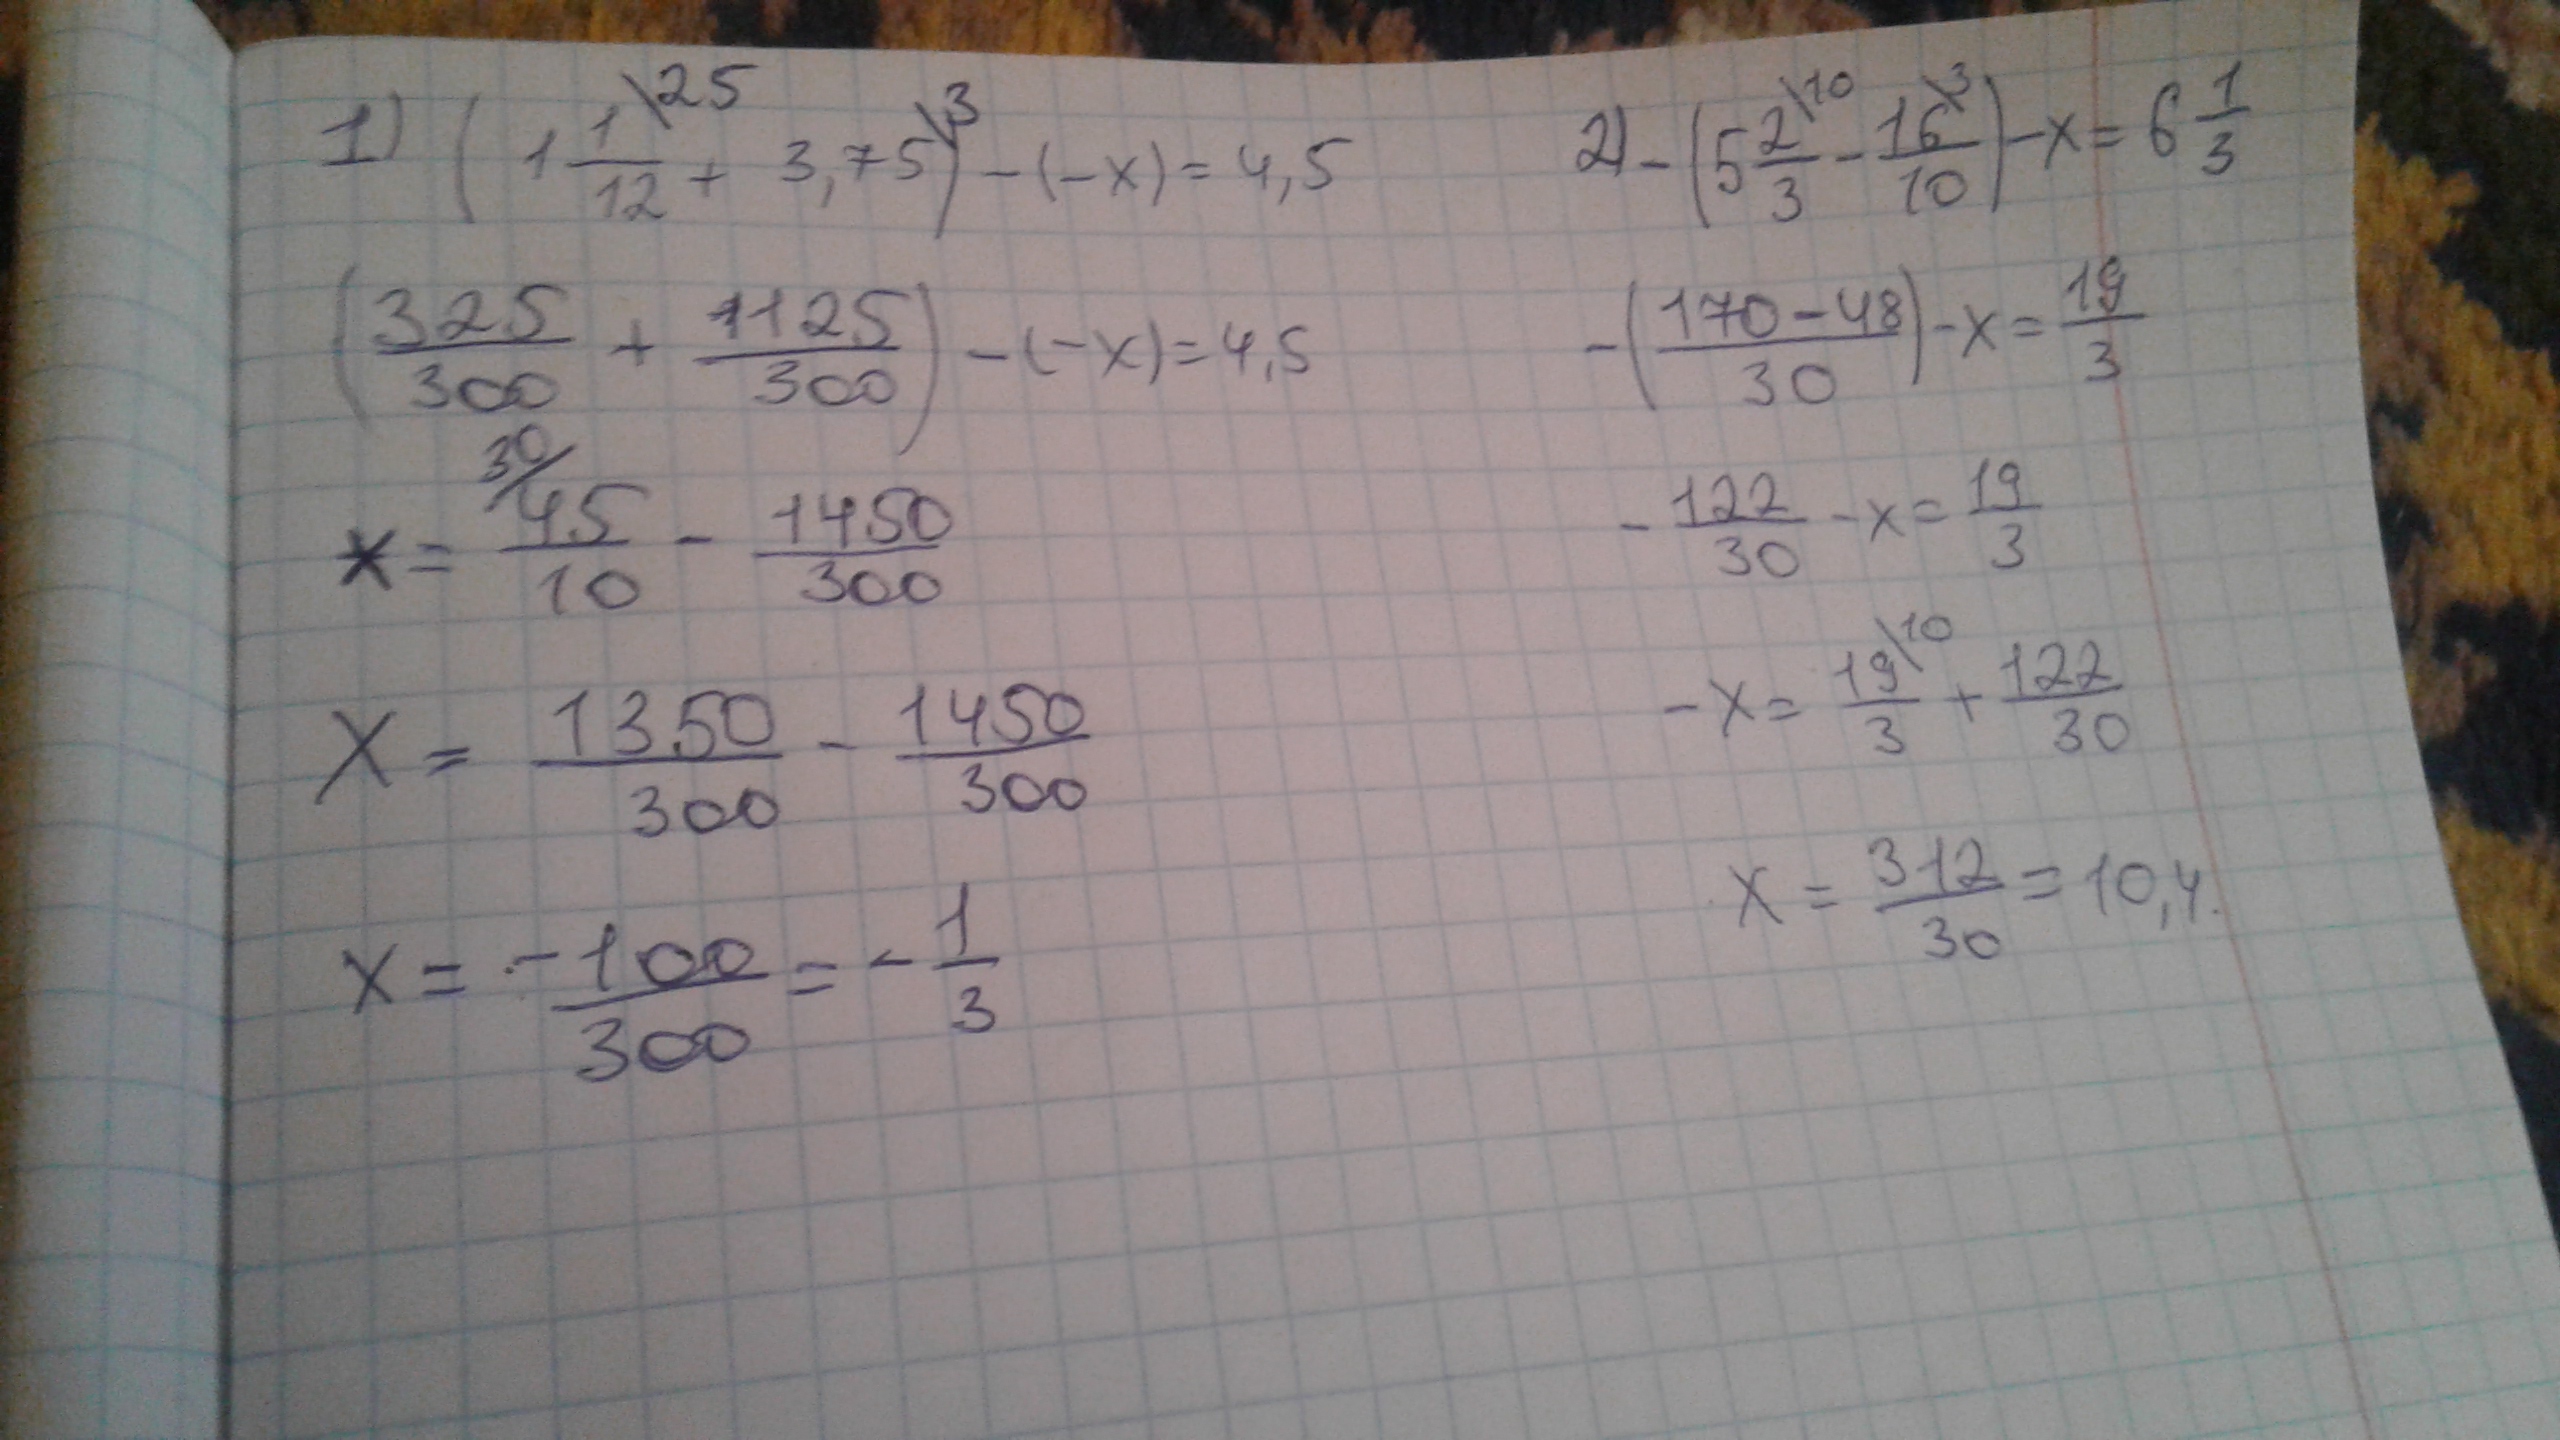 1) (1 1/12 \25 + 3,75 \3) - (-x) = 4,5
(325/300 + 1125/300) - (-x) = 4,5
x = 30/ 45/10 - 1450/300
x = 1350/300 - 1450/300
x = -100/300 = - 1/3
2) - (5 2/3 \10 - 16/10 \3) - x = 6 1/3
- ((170-48)/30) - x = 19/3
- 122/30 - x = 19/3
- x = 19/3 \10 + 122/30
x = 312/30 = 10,4.